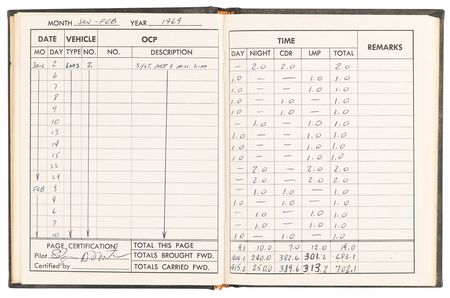 MONTH JAN-FEB YEAR 1969
DATE VEHICLE OCP TIME REMARKS
MO DAY TYPE NO. NO. DESCRIPTION DAY NIGHT CDR LMP TOTAL
JAN 2 LMS 2 SYST. ACT & MISS SIM — 2.0 2.0 2.0
6 1.0 — — 1.0 1.0
7 1.0 — 1.0 1.0
8 1.0 — — 1.0 1.0
9 1.0 — 1.0 1.0
10 — 1.0 — 1.0 1.0
13 1.0 — — 1.0 1.0
14 1.0 — 1.0 — 1.0
15 1.0 — — 1.0 1.0
22 — 2.0 — 2.0 2.0
29 — 2.0 — 2.0 2.0
FEB 3 — 1.0 1.0 — 1.0
4 1.0 — — 1.0 1.0
6 — 1.0 — 1.0 1.0
7 — 1.0 1.0 1.0
10 1.0 — 1.0 — 1.0
PAGE CERTIFICATION TOTAL THIS PAGE 10.0 7.0 12.0 19.0
Pilot TOTALS BROUGHT FWD. 240.0 382.6 301.2 683.1
Certified by TOTALS CARRIED FWD. 415.1 250.0 389.6 313.2 702.1